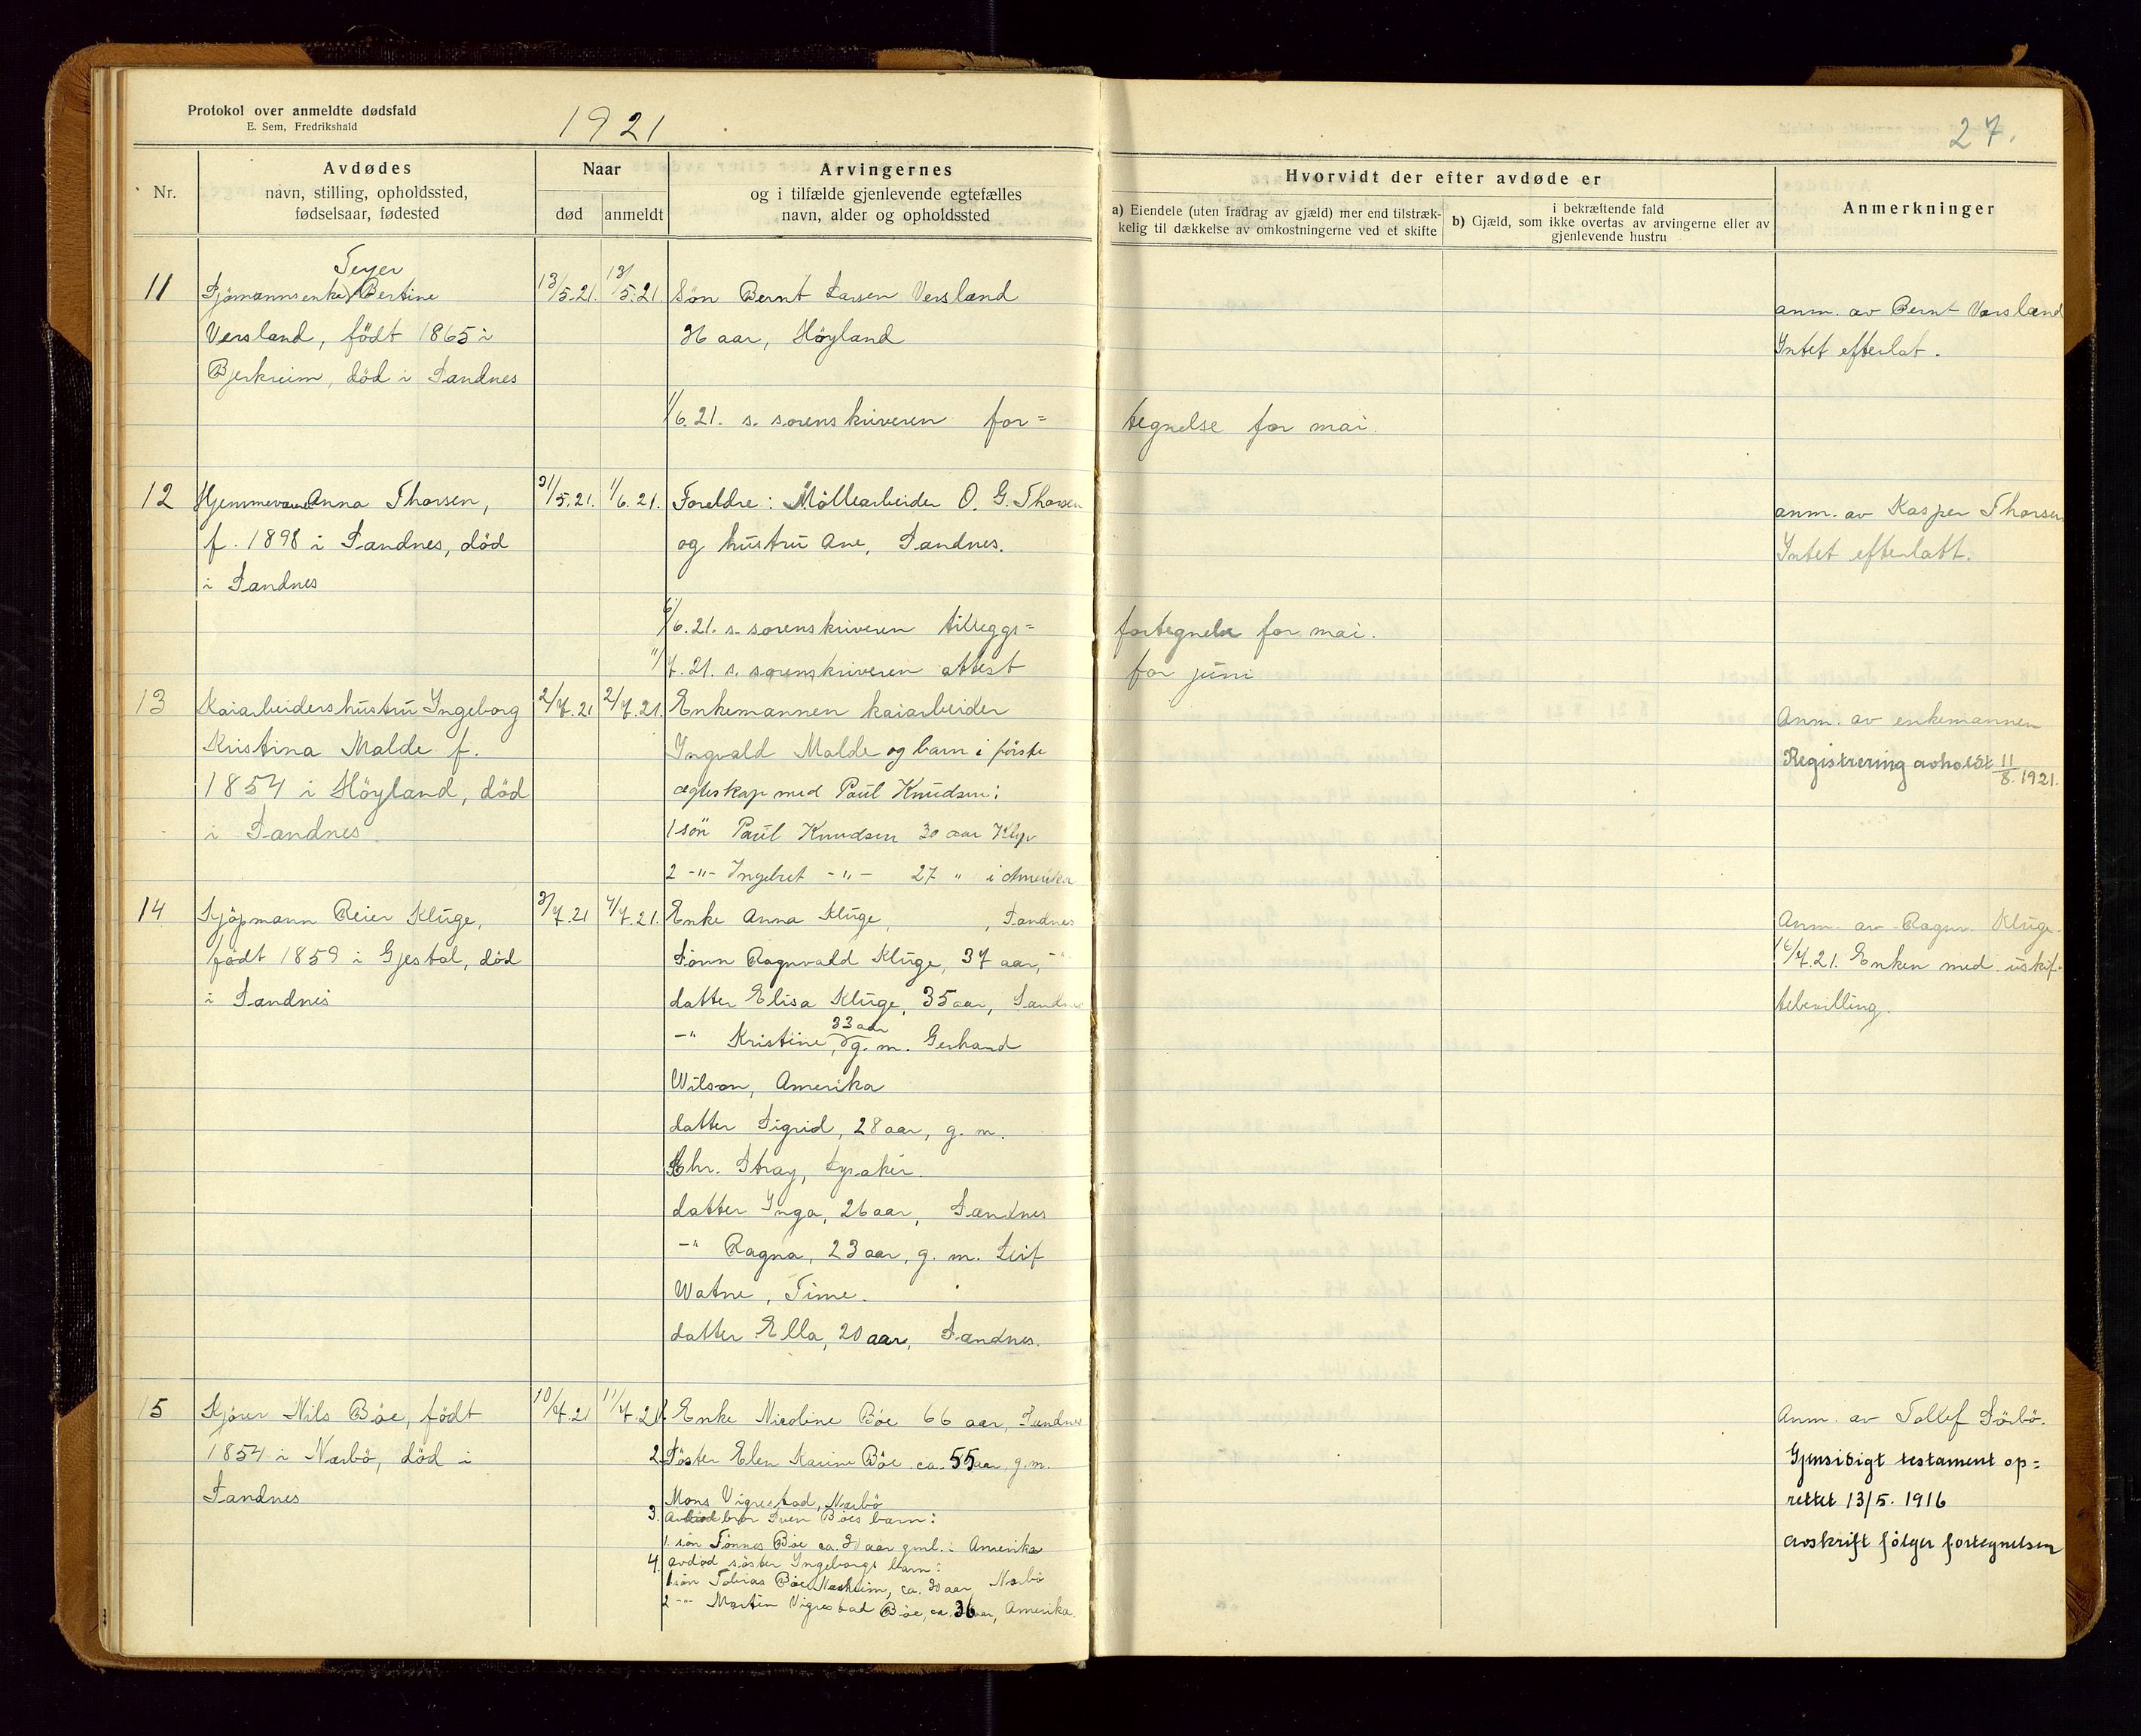 Protokol over anmeldte dødsfald
E. Sem, Fredrikshald
1921
27.
Nr.
Avdødes
navn, stilling, opholdssted,
fødselsaar, fødested
Naar
død
anmeldt
Arvingernes
og i tilfælde gjenlevende egtefælles
navn, alder og opholdssted
Hvorvidt der efter avdøde er
a) Eiendele (uten fradrag av gjæld) mer end tilstræk-
kelig til dækkelse av omkostningerne ved et skifte
i bekræftende fald
b) Gjæld, som ikke overtas av arvingerne eller av
gjenlevende hustru
Anmerkninger
11
Teyer
Sjømannsenke Bertine
Versland, født 1865 i
Bjerkreim, død i Sandnes
13/5.21. 13/5.21.
Søn Bernt Larsen Versland
36 aar, Höyland
anm. av Bernt Versland
Intet efterlat.
1/6.21. s. sorenskriveren for=
tegnelse for mai.
12
Hjemmeværende Anna Thorsen,
f. 1898 i Sandnes, död
i Sandnes
31/5.21. 1/6.21.
Foreldre: Möllearbeider O. G. Thorsen
og hustru Ane, Sandnes.
anm. av Kasper Thorsen
Intet efterlatt.
6/6.21. s. sorenskriveren tilleggs=
fortegnelse for mai.
11/7.21. s. sorenskriveren attest
for juni
13
Kaiarbeidershustru Ingeborg
Kristina Malde f.
1854 i Höyland, död
i Sandnes
2/7.21 2/7.21.
Enkemannen kaiarbeider
Ingvald Malde og barn i förste
ægteskap med Paul Knudsen:
1 sön Paul Knudsen 30 aar Klep
2 -"- Ingebret -"- 27 " i Amerika
Anm. av enkemannen
Registrering avholdt 11/8. 1921.
14
Kjöpmann Reier Kluge,
födt 1859 i Gjestal, död
i Sandnes
3/7.21 4/7.21.
Enke Anna Kluge, , Sandnes
Sönn Ragnvald Kluge, 37 aar, -"
datter Elisa Kluge, 35 aar, Sandnes
33 aar
-" Kristine, g. m. Gerhard
Wilson, Amerika
datter Sigrid, 28 aar, g. m.
Chr. Stray, Lysaker.
datter Inga, 26 aar, Sandnes
-" Ragna, 23 aar, g. m. Leif
Watne, Time.
datter Ella, 20 aar, Sandnes.
Anm. av Ragnv. Kluge.
16/7.21. Enken med uskif-
tebevilling.
15
Kjörer Nils Böe, födt
1854 i Nærbö, död i
Sandnes
10/7.21 11/7.21
1. Enke Nicoline Böe 66 aar, Sandnes
2. Söster Elen Karine Böe ca. 55 aar, g.m.
Mons Vigrestad, Nærbö
3. avdöd bror Sven Böes barn:
1. sön Tönnes Böe ca. 30 aar gml. i Amerika
4. avdöd söster Ingeborgs barn:
1 sön Tobias Böe Næsheim, ca. 30 aar, Nærbö
2 -"- Martin Vigrestad Böe, ca. 36 aar, Amerika.
Anm. av Tollef Sörbö.
Gjensidigt testament op=
rettet 13/5. 1916
avskrift følger fortegnelsen